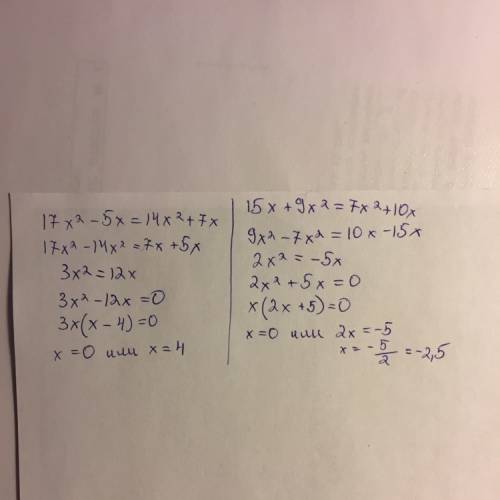 17x² − 5x = 14x² + 7x
17x² − 14x² = 7x + 5x
3x² = 12x
3x² − 12x = 0
3x(x − 4) = 0
x = 0 или x = 4
15x + 9x² = 7x² + 10x
9x² − 7x² = 10x − 15x
2x² = −5x
2x² + 5x = 0
x(2x + 5) = 0
x = 0 или 2x = −5
x = −5/2 = −2,5